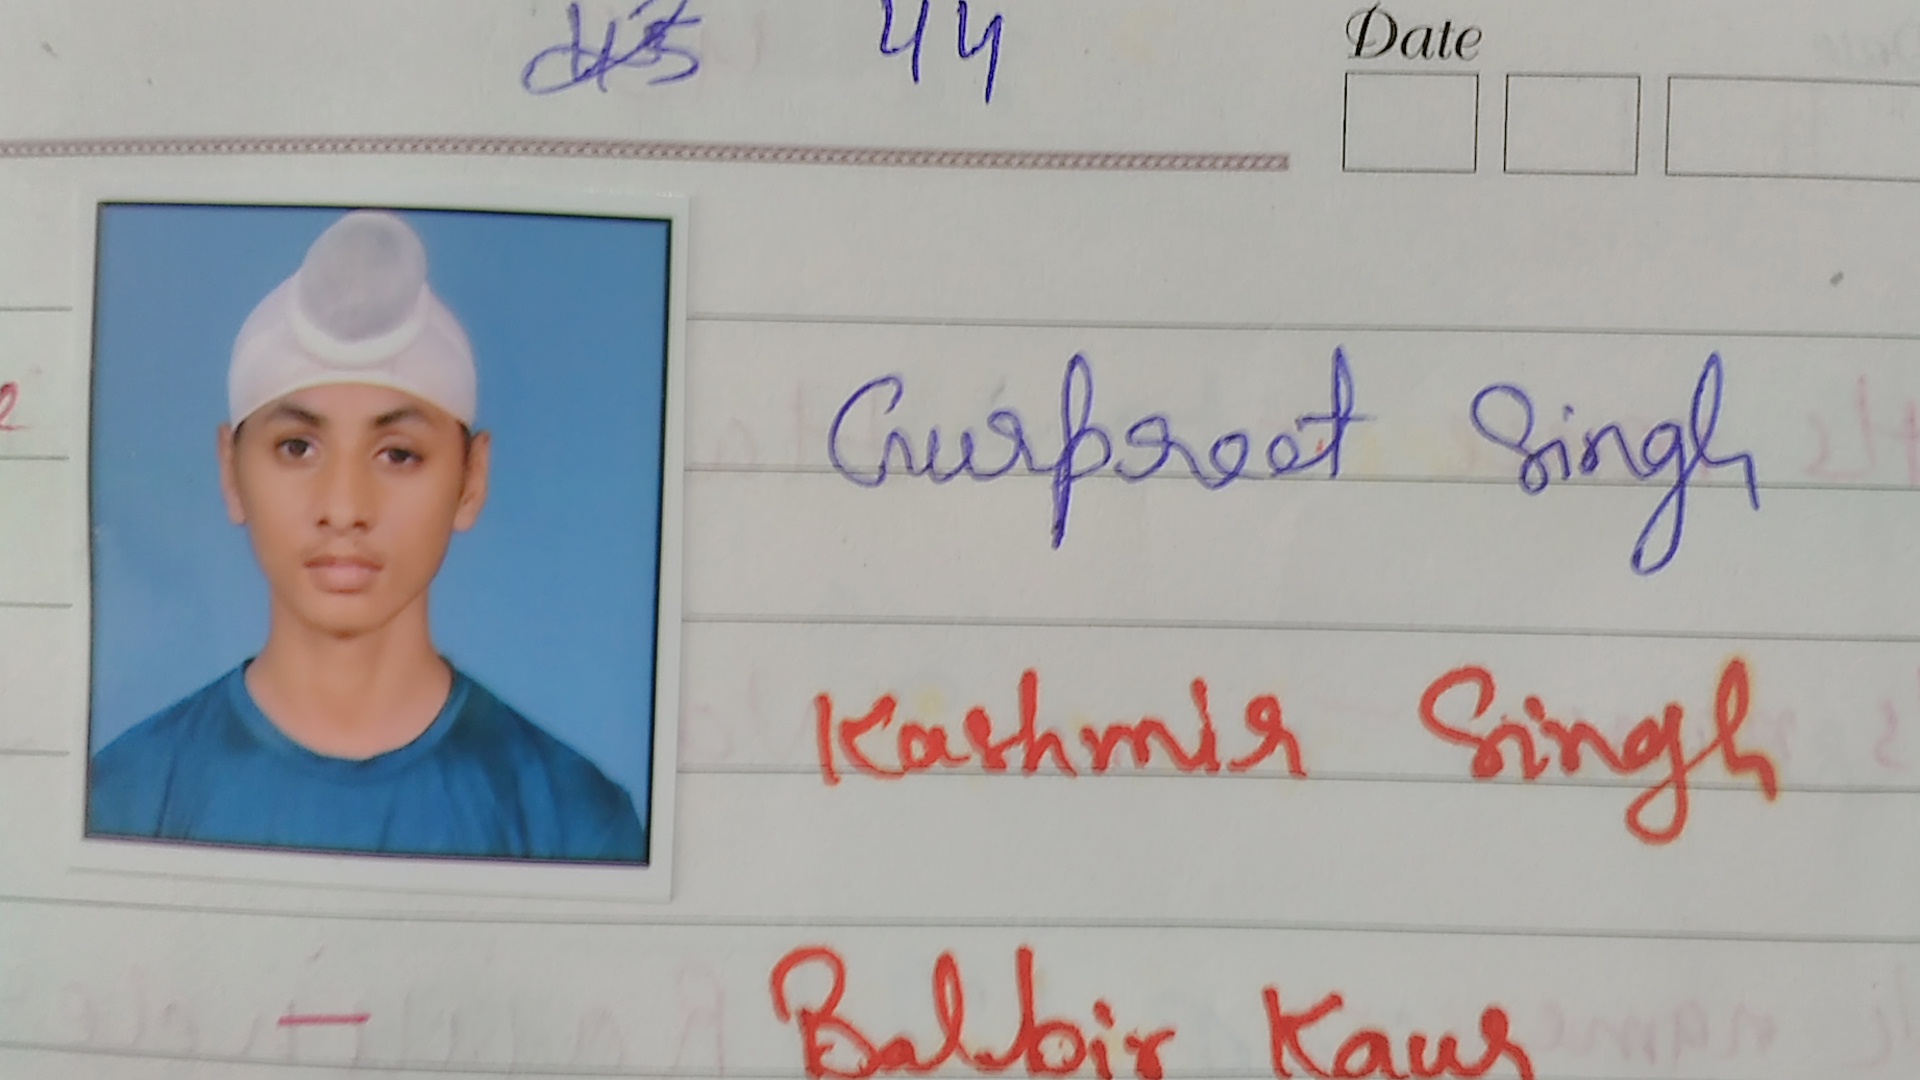 44
Date
Gurpreet Singh
Kashmir Singh
Balbir Kaur